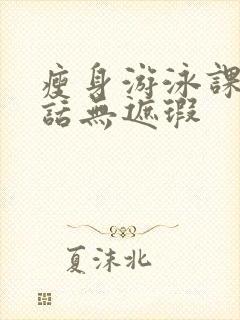 瘦身游泳課
話無遮瑕
夏沫北